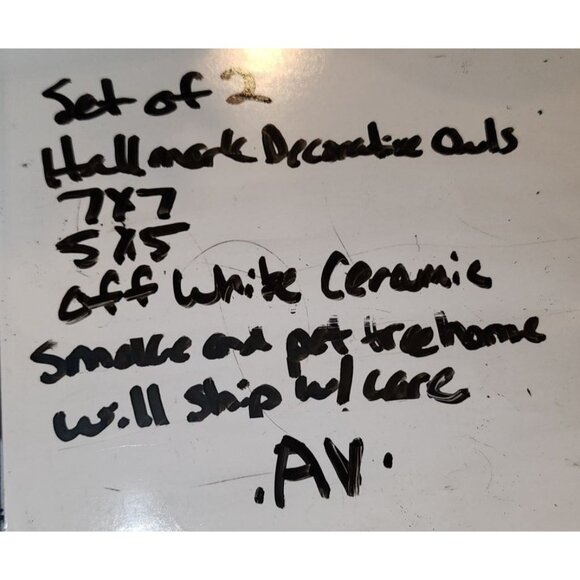 Set of 2
Hallmark Decorative Owls
7x7
5x5
Off White Ceramic
Smoke and pet free home
Will ship w/ care
.AV.